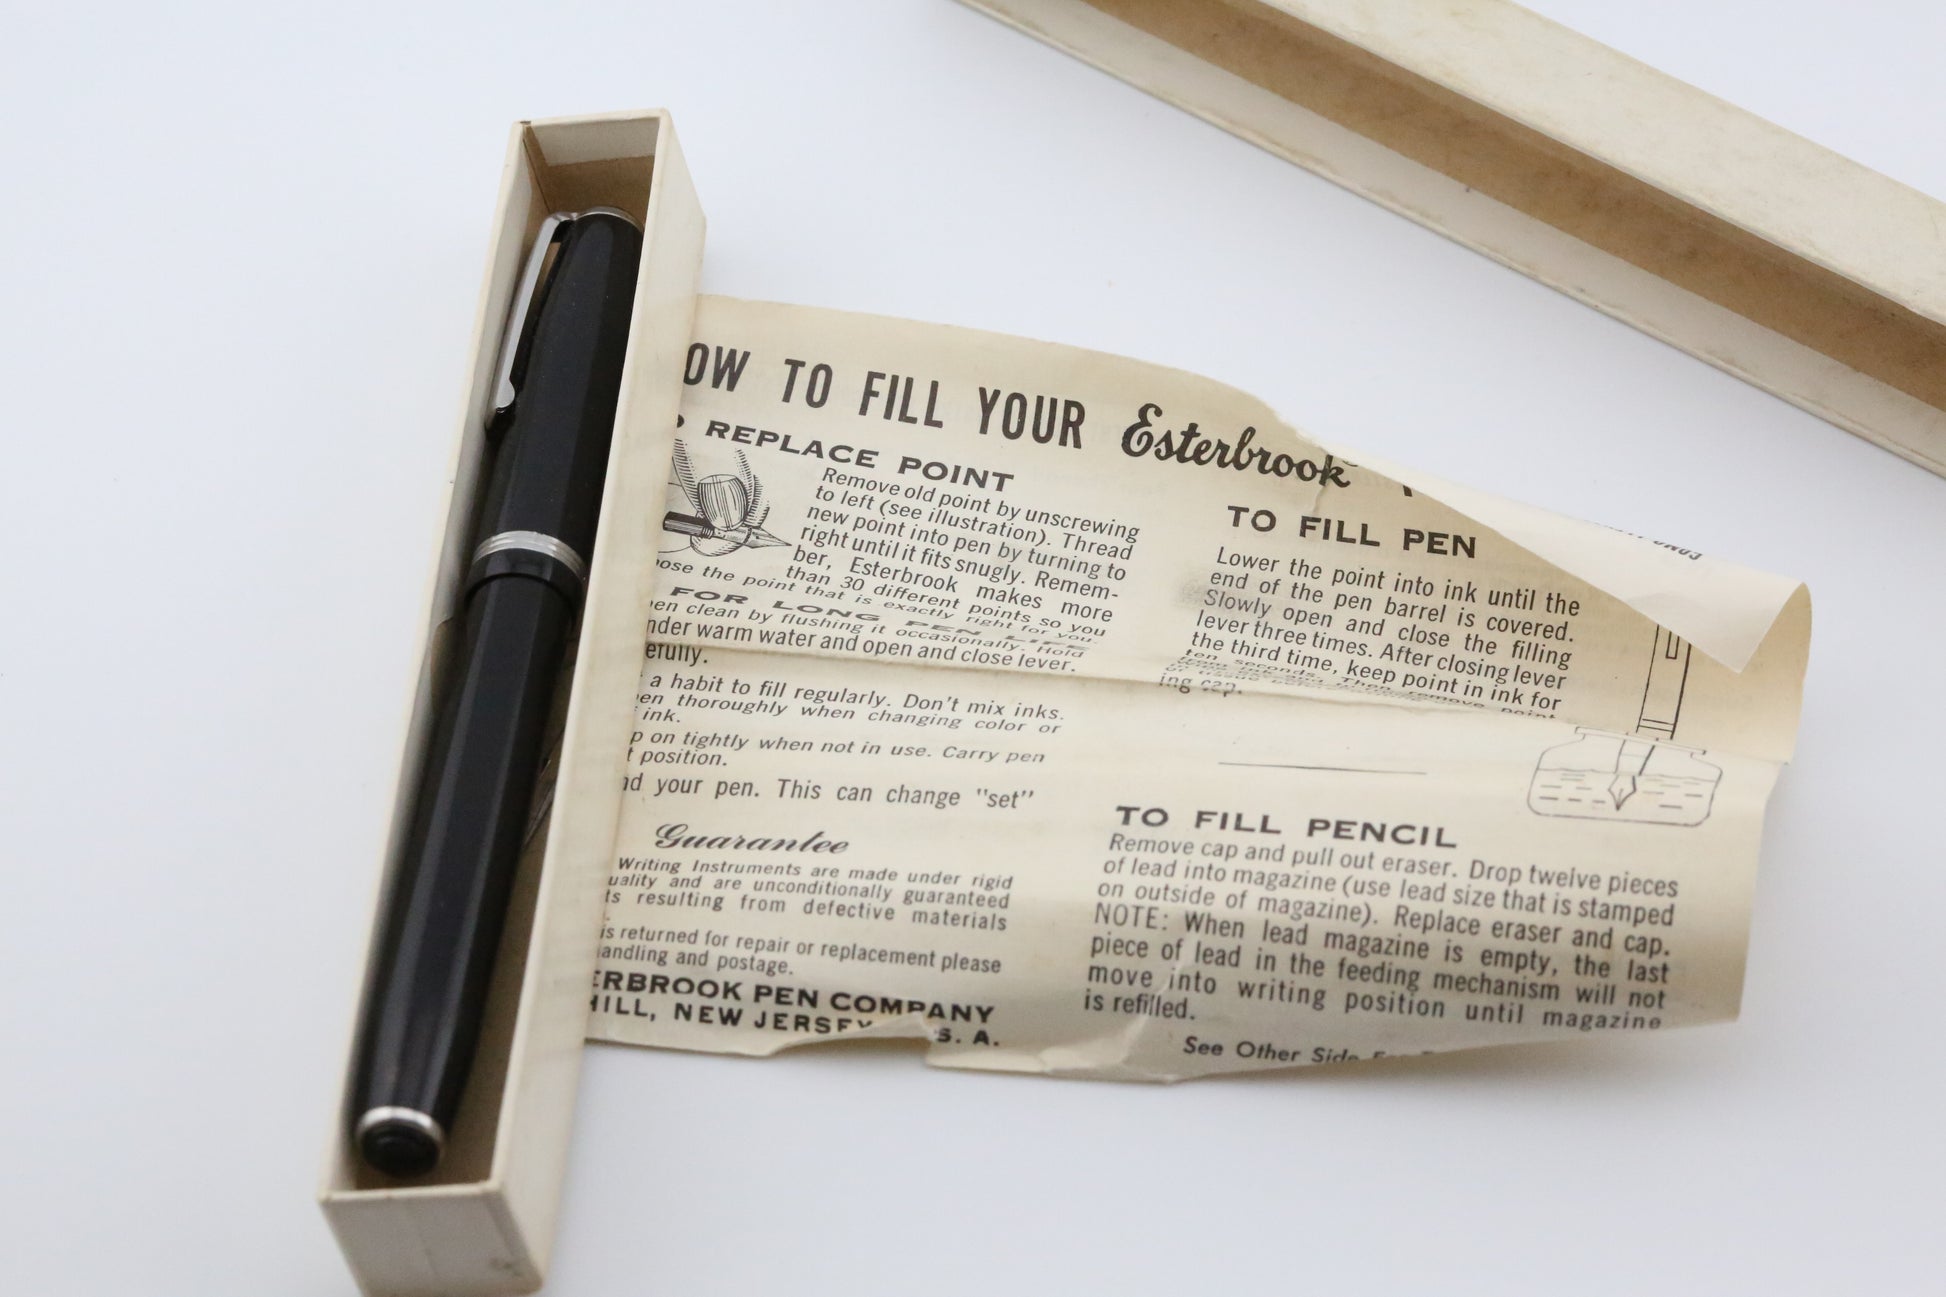 OW TO FILL YOUR Esterbrook
REPLACE POINT
Remove old point by unscrewing
to left (see illustration). Thread
new point into pen by turning to
right until it fits snugly. Remem-
ber, Esterbrook makes more
than 30 different points so you
ose the point that is exactly right for you.
FOR LONG PEN LIFE
en clean by flushing it occasionally. Hold
nder warm water and open and close lever.
efully.
a habit to fill regularly. Don't mix inks.
en thoroughly when changing color or
ink.
p on tightly when not in use. Carry pen
t position.
nd your pen. This can change "set"
Guarantee
Writing Instruments are made under rigid
uality and are unconditionally guaranteed
ts resulting from defective materials
is returned for repair or replacement please
andling and postage.
ERBROOK PEN COMPANY
HILL, NEW JERSEY S. A.
TO FILL PEN
Lower the point into ink until the
end of the pen barrel is covered.
Slowly open and close the filling
lever three times. After closing lever
the third time, keep point in ink for
ten seconds. Then remove point
ing cap.
TO FILL PENCIL
Remove cap and pull out eraser. Drop twelve pieces
of lead into magazine (use lead size that is stamped
on outside of magazine). Replace eraser and cap.
NOTE: When lead magazine is empty, the last
piece of lead in the feeding mechanism will not
move into writing position until magazine
is refilled.
See Other Side For